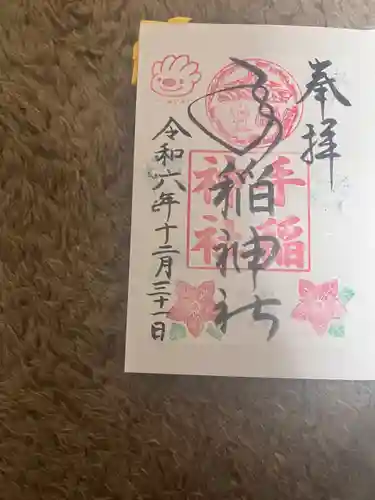 奉拝
手稲神社
手稲神社
令和六年十二月三十一日